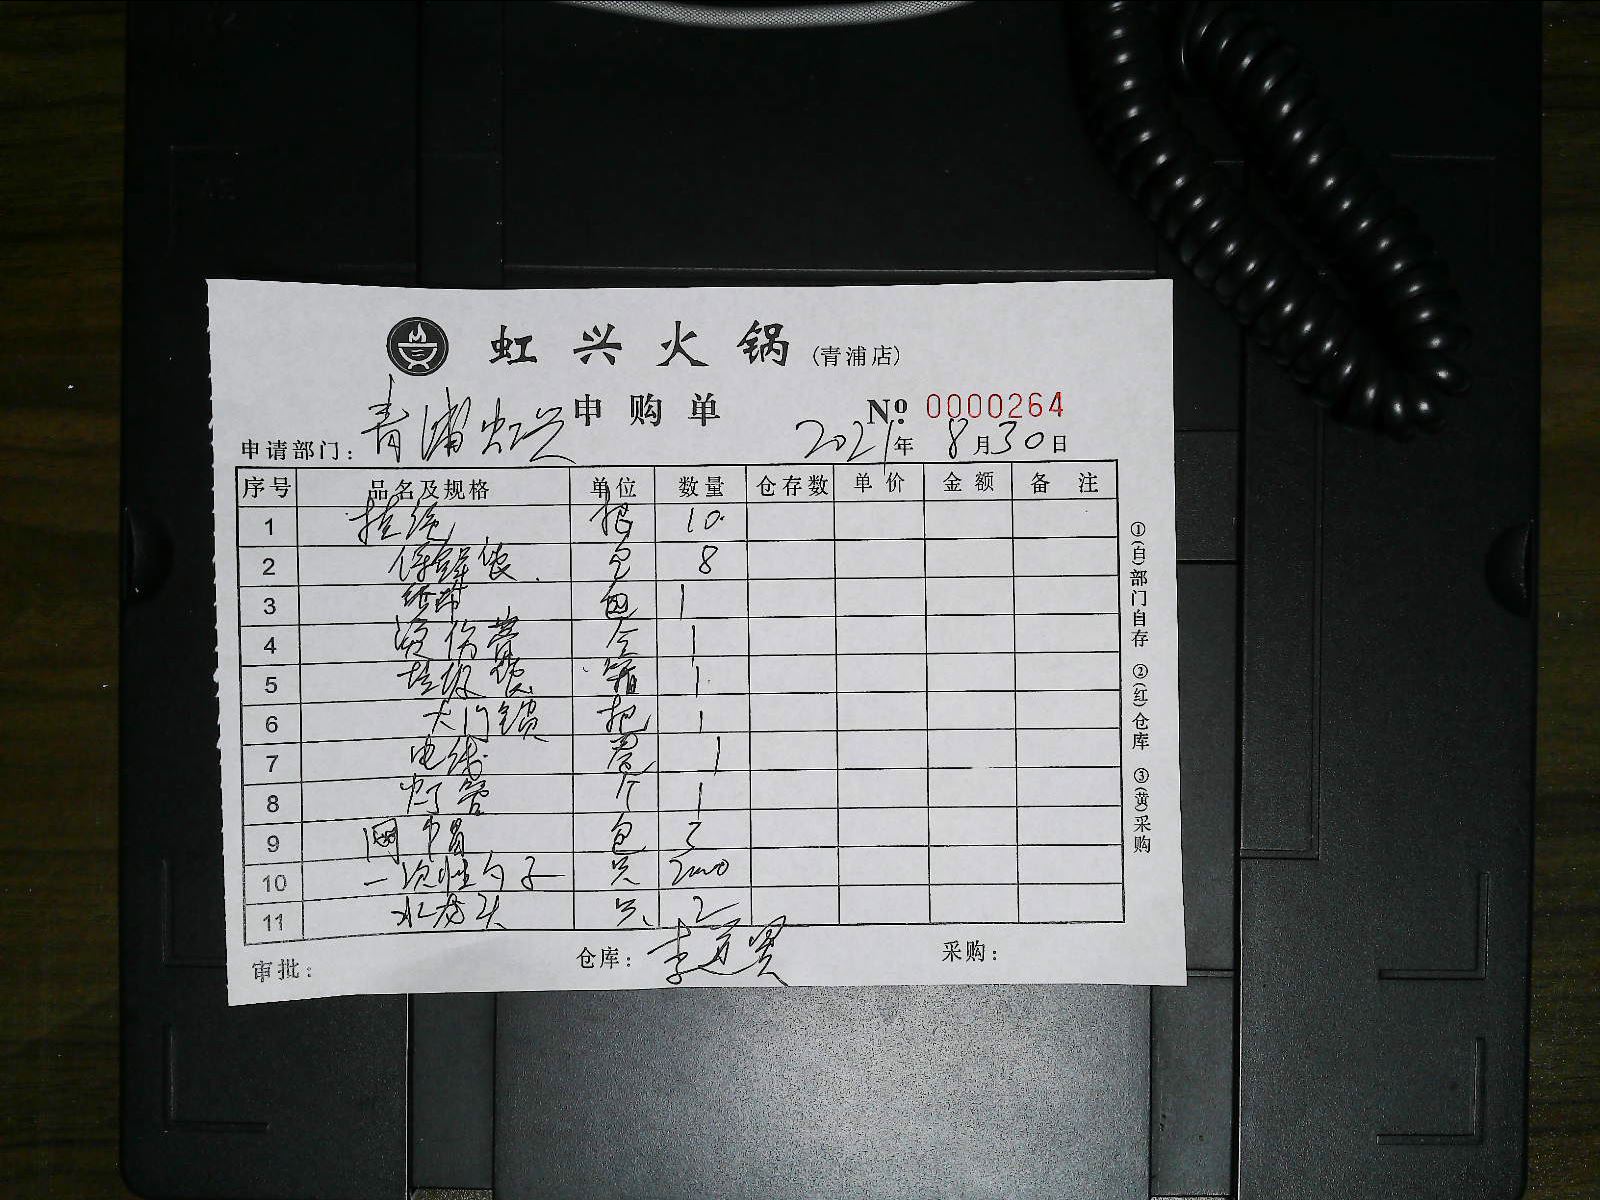 虹兴火锅(青浦店)
申购单 № 0000264
申请部门: 青浦虹兴 2021年8月30日
序号 品名及规格 单位 数量 仓存数 单价 金额 备注
1 根 10
2 保鲜袋 包 8
3 包 1
4 1
5 垃圾袋 箱 1
6 大门锁 把 1
7 电线 卷 1
8 灯管 个 1
9 网帽 包 3
10 一次性勺子 只 2000
11 水龙头 只 2
审批: 仓库: 李 采购:
①(白)部门自存 ②(红)仓库 ③(黄)采购